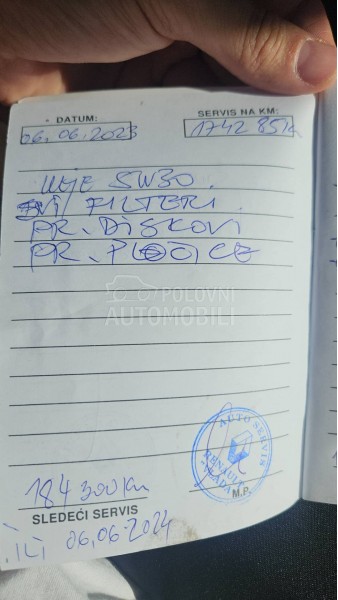 DATUM:
SERVIS NA KM:
06.06.2023
174285km
ULJE 5W30.
SVI FILTERI.
PR. DISKOVI
PR. PLOČICE
POLOVNI
AUTOMOBILI
AUTO SERVIS
RENAULT
184 300 km
M.P.
SLEDEĆI SERVIS
ILI 06.06.2024